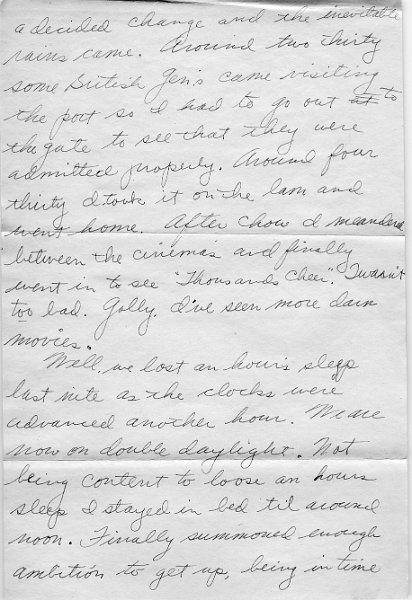 a decided change and the inevitable
rains came. Around two thirty
some British Gen's came visiting
the port so I had to go out at to
the gate to see that they were
admitted properly. Around four
thirty I took it on the lam and
went home. After chow I meandered
between the cinemas and finally
went in to see "Thousands Cheer". Twasn't
too bad. Golly, I've seen more darn
movies.
Well, we lost an hour's sleep
last nite as the clocks were
advanced another hour. We are
now on double daylight. Not
being content to loose an hours
sleep I stayed in bed til around
noon. Finally summoned enough
ambition to get up, being in time